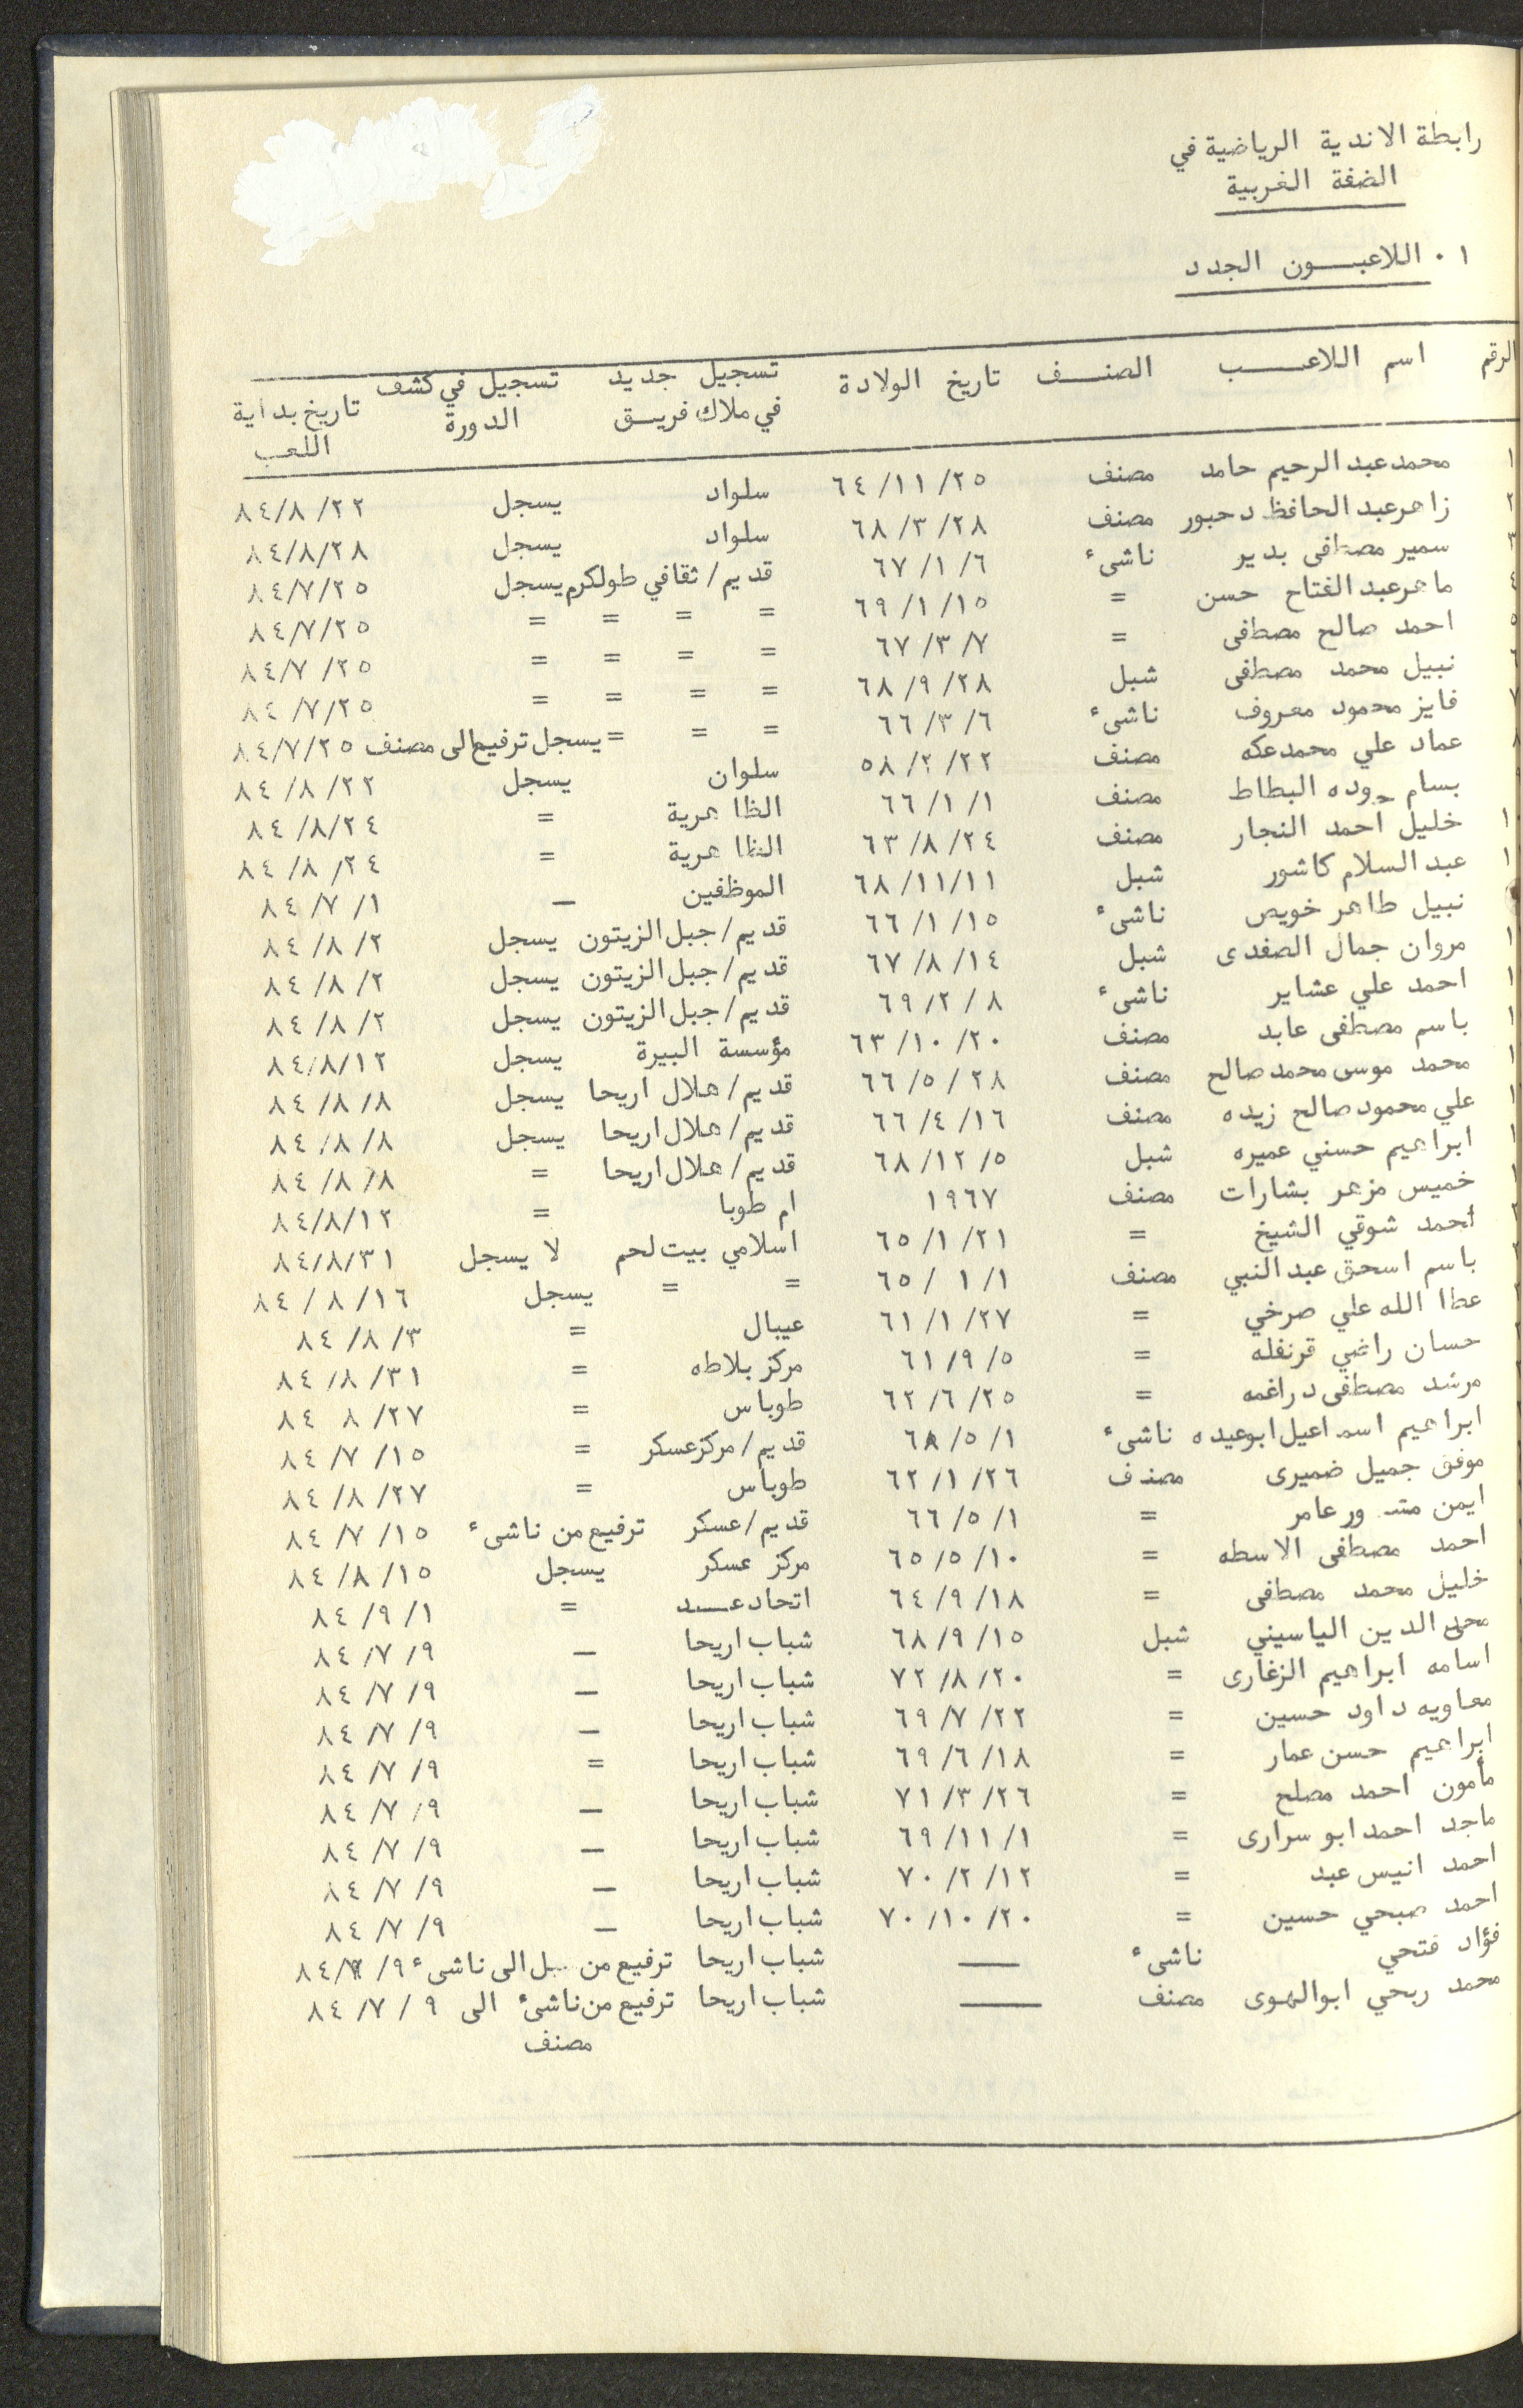 رابطة الاندية الرياضية في
الضفة الغربية
١ . اللاعبـــون الجدد
الرقم اسم اللاعــــب الصنــف تاريخ الولادة تسجيل جديد في ملاك فريـق تسجيل في كشف الدورة تاريخ بداية اللعب
١ محمد عبد الرحيم حامد مصنف ٢٥/ ١١/ ٦٤ سلواد يسجل ٢٢/ ٨/ ٨٤
٢ زاهر عبد الحافظ دحبور مصنف ٢٨/ ٣/ ٦٨ سلواد يسجل ٢٨/ ٨/ ٨٤
٣ سمير مصطفى بدير ناشىء ٦/ ١/ ٦٧ قديم/ ثقافي طولكرم يسجل ٢٥/ ٧/ ٨٤
٤ ماهر عبد الفتاح حسن = ١٥/ ١/ ٦٩ = = = = ٢٥/ ٧/ ٨٤
٥ احمد صالح مصطفى = ٧/ ٣/ ٦٧ = = = = ٢٥/ ٧/ ٨٤
٦ نبيل محمد مصطفى شبل ٢٨/ ٩/ ٦٨ = = = = ٢٥/ ٧/ ٨٤
٧ فايز محمود معروف ناشىء ٦/ ٣/ ٦٦ = = = يسجل ترفيع الى مصنف ٢٥/ ٧/ ٨٤
٨ عماد علي محمد عكه مصنف ٢٢/ ٢/ ٥٨ سلوان يسجل ٢٢/ ٨/ ٨٤
بسام جوده البطاط مصنف ١/ ١/ ٦٦ الظاهرية = ٢٤/ ٨/ ٨٤
١ خليل احمد النجار مصنف ٢٤/ ٨/ ٦٣ الظاهرية = ٢٤/ ٨/ ٨٤
١ عبد السلام كاشور شبل ١١/ ١١/ ٦٨ الموظفين — ١/ ٧/ ٨٤
نبيل طاهر خويص ناشىء ١٥/ ١/ ٦٦ قديم/ جبل الزيتون يسجل ٢/ ٨/ ٨٤
١ مروان جمال الصفدى شبل ١٤/ ٨/ ٦٧ قديم/ جبل الزيتون يسجل ٢/ ٨/ ٨٤
١ احمد علي عشاير ناشىء ٨/ ٢/ ٦٩ قديم/ جبل الزيتون يسجل ٢/ ٨/ ٨٤
١ باسم مصطفى عابد مصنف ٢٠/ ١٠/ ٦٣ مؤسسة البيرة يسجل ١٢/ ٨/ ٨٤
١ محمد موسى محمد صالح مصنف ٢٨/ ٥/ ٦٦ قديم/ هلال اريحا يسجل ٨/ ٨/ ٨٤
١ علي محمود صالح زيده مصنف ١٦/ ٤/ ٦٦ قديم/ هلال اريحا يسجل ٨/ ٨/ ٨٤
١ ابراهيم حسني عميره شبل ٥/ ١٢/ ٦٨ قديم/ هلال اريحا = ٨/ ٨/ ٨٤
١ خميس مزهر بشارات مصنف ١٩٦٧ ام طوبا = ١٢/ ٨/ ٨٤
٢ احمد شوقي الشيخ = ٢١/ ١/ ٦٥ اسلامي بيت لحم لا يسجل ٣١/ ٨/ ٨٤
٢ باسم اسحق عبد النبي مصنف ١/ ١/ ٦٥ = = يسجل ١٦/ ٨/ ٨٤
٢ عطا الله علي صرخي = ٢٧/ ١/ ٦١ عيبال = ٣/ ٨/ ٨٤
حسان راضي قرنفله = ٥/ ٩/ ٦١ مركز بلاطه = ٣١/ ٨/ ٨٤
مرشد مصطفى دراغمه = ٢٥/ ٦/ ٦٢ طوباس = ٢٧/ ٨ ٨٤
ابراهيم اسماعيل ابوعيده ناشىء ١/ ٥/ ٦٨ قديم/ مركز عسكر = ١٥/ ٧/ ٨٤
موفق جميل ضميرى مصنف ٢٦/ ١/ ٦٢ طوباس = ٢٧/ ٨/ ٨٤
ايمن عامر = ١/ ٥/ ٦٦ قديم/ عسكر ترفيع من ناشىء ١٥/ ٧/ ٨٤
احمد مصطفى الاسطه = ١٠/ ٥/ ٦٥ مركز عسكر يسجل ١٥/ ٨/ ٨٤
خليل محمد مصطفى = ١٨/ ٩/ ٦٤ اتحاد = ١/ ٩/ ٨٤
محى الدين الياسيني شبل ١٥/ ٩/ ٦٨ شباب اريحا — ٩/ ٧/ ٨٤
اسامه ابراهيم الزغارى = ٢٠/ ٨/ ٧٢ شباب اريحا — ٩/ ٧/ ٨٤
معاويه داود حسين = ٢٢/ ٧/ ٦٩ شباب اريحا — ٩/ ٧/ ٨٤
ابراهيم حسن عمار = ١٨/ ٦/ ٦٩ شباب اريحا = ٩/ ٧/ ٨٤
مأمون احمد مصلح = ٢٦/ ٣/ ٧١ شباب اريحا — ٩/ ٧/ ٨٤
ماجد احمد ابو سرارى = ١/ ١١/ ٦٩ شباب اريحا — ٩/ ٧/ ٨٤
احمد انيس عبد = ١٢/ ٢/ ٧٠ شباب اريحا — ٩/ ٧/ ٨٤
احمد صبحي حسين = ٢٠/ ١٠/ ٧٠ شباب اريحا — ٩/ ٧/ ٨٤
فؤاد فتحي ناشىء —— شباب اريحا ترفيع من شبل الى ناشىء ٩/ ٧/ ٨٤
محمد ربحي ابوالهوى مصنف —— شباب اريحا ترفيع من ناشىء الى ٩/ ٧/ ٨٤
مصنف